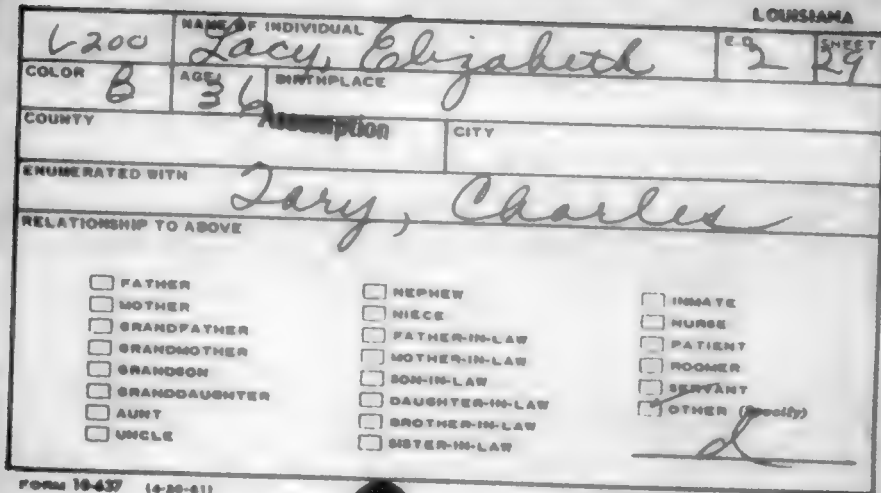 LOUISIANA
L200 NAME OF INDIVIDUAL Lacy, Elizabeth E.D. 2 SHEET 29
COLOR B AGE 36 BIRTHPLACE
COUNTY Assumption CITY
ENUMERATED WITH Lary, Charles
RELATIONSHIP TO ABOVE
FATHER
MOTHER
GRANDFATHER
GRANDMOTHER
GRANDSON
GRANDDAUGHTER
AUNT
UNCLE
NEPHEW
NIECE
FATHER-IN-LAW
MOTHER-IN-LAW
SON-IN-LAW
DAUGHTER-IN-LAW
BROTHER-IN-LAW
SISTER-IN-LAW
INMATE
NURSE
PATIENT
ROOMER
SERVANT
OTHER (Specify)
d
FORM 10-637 (4-20-61)